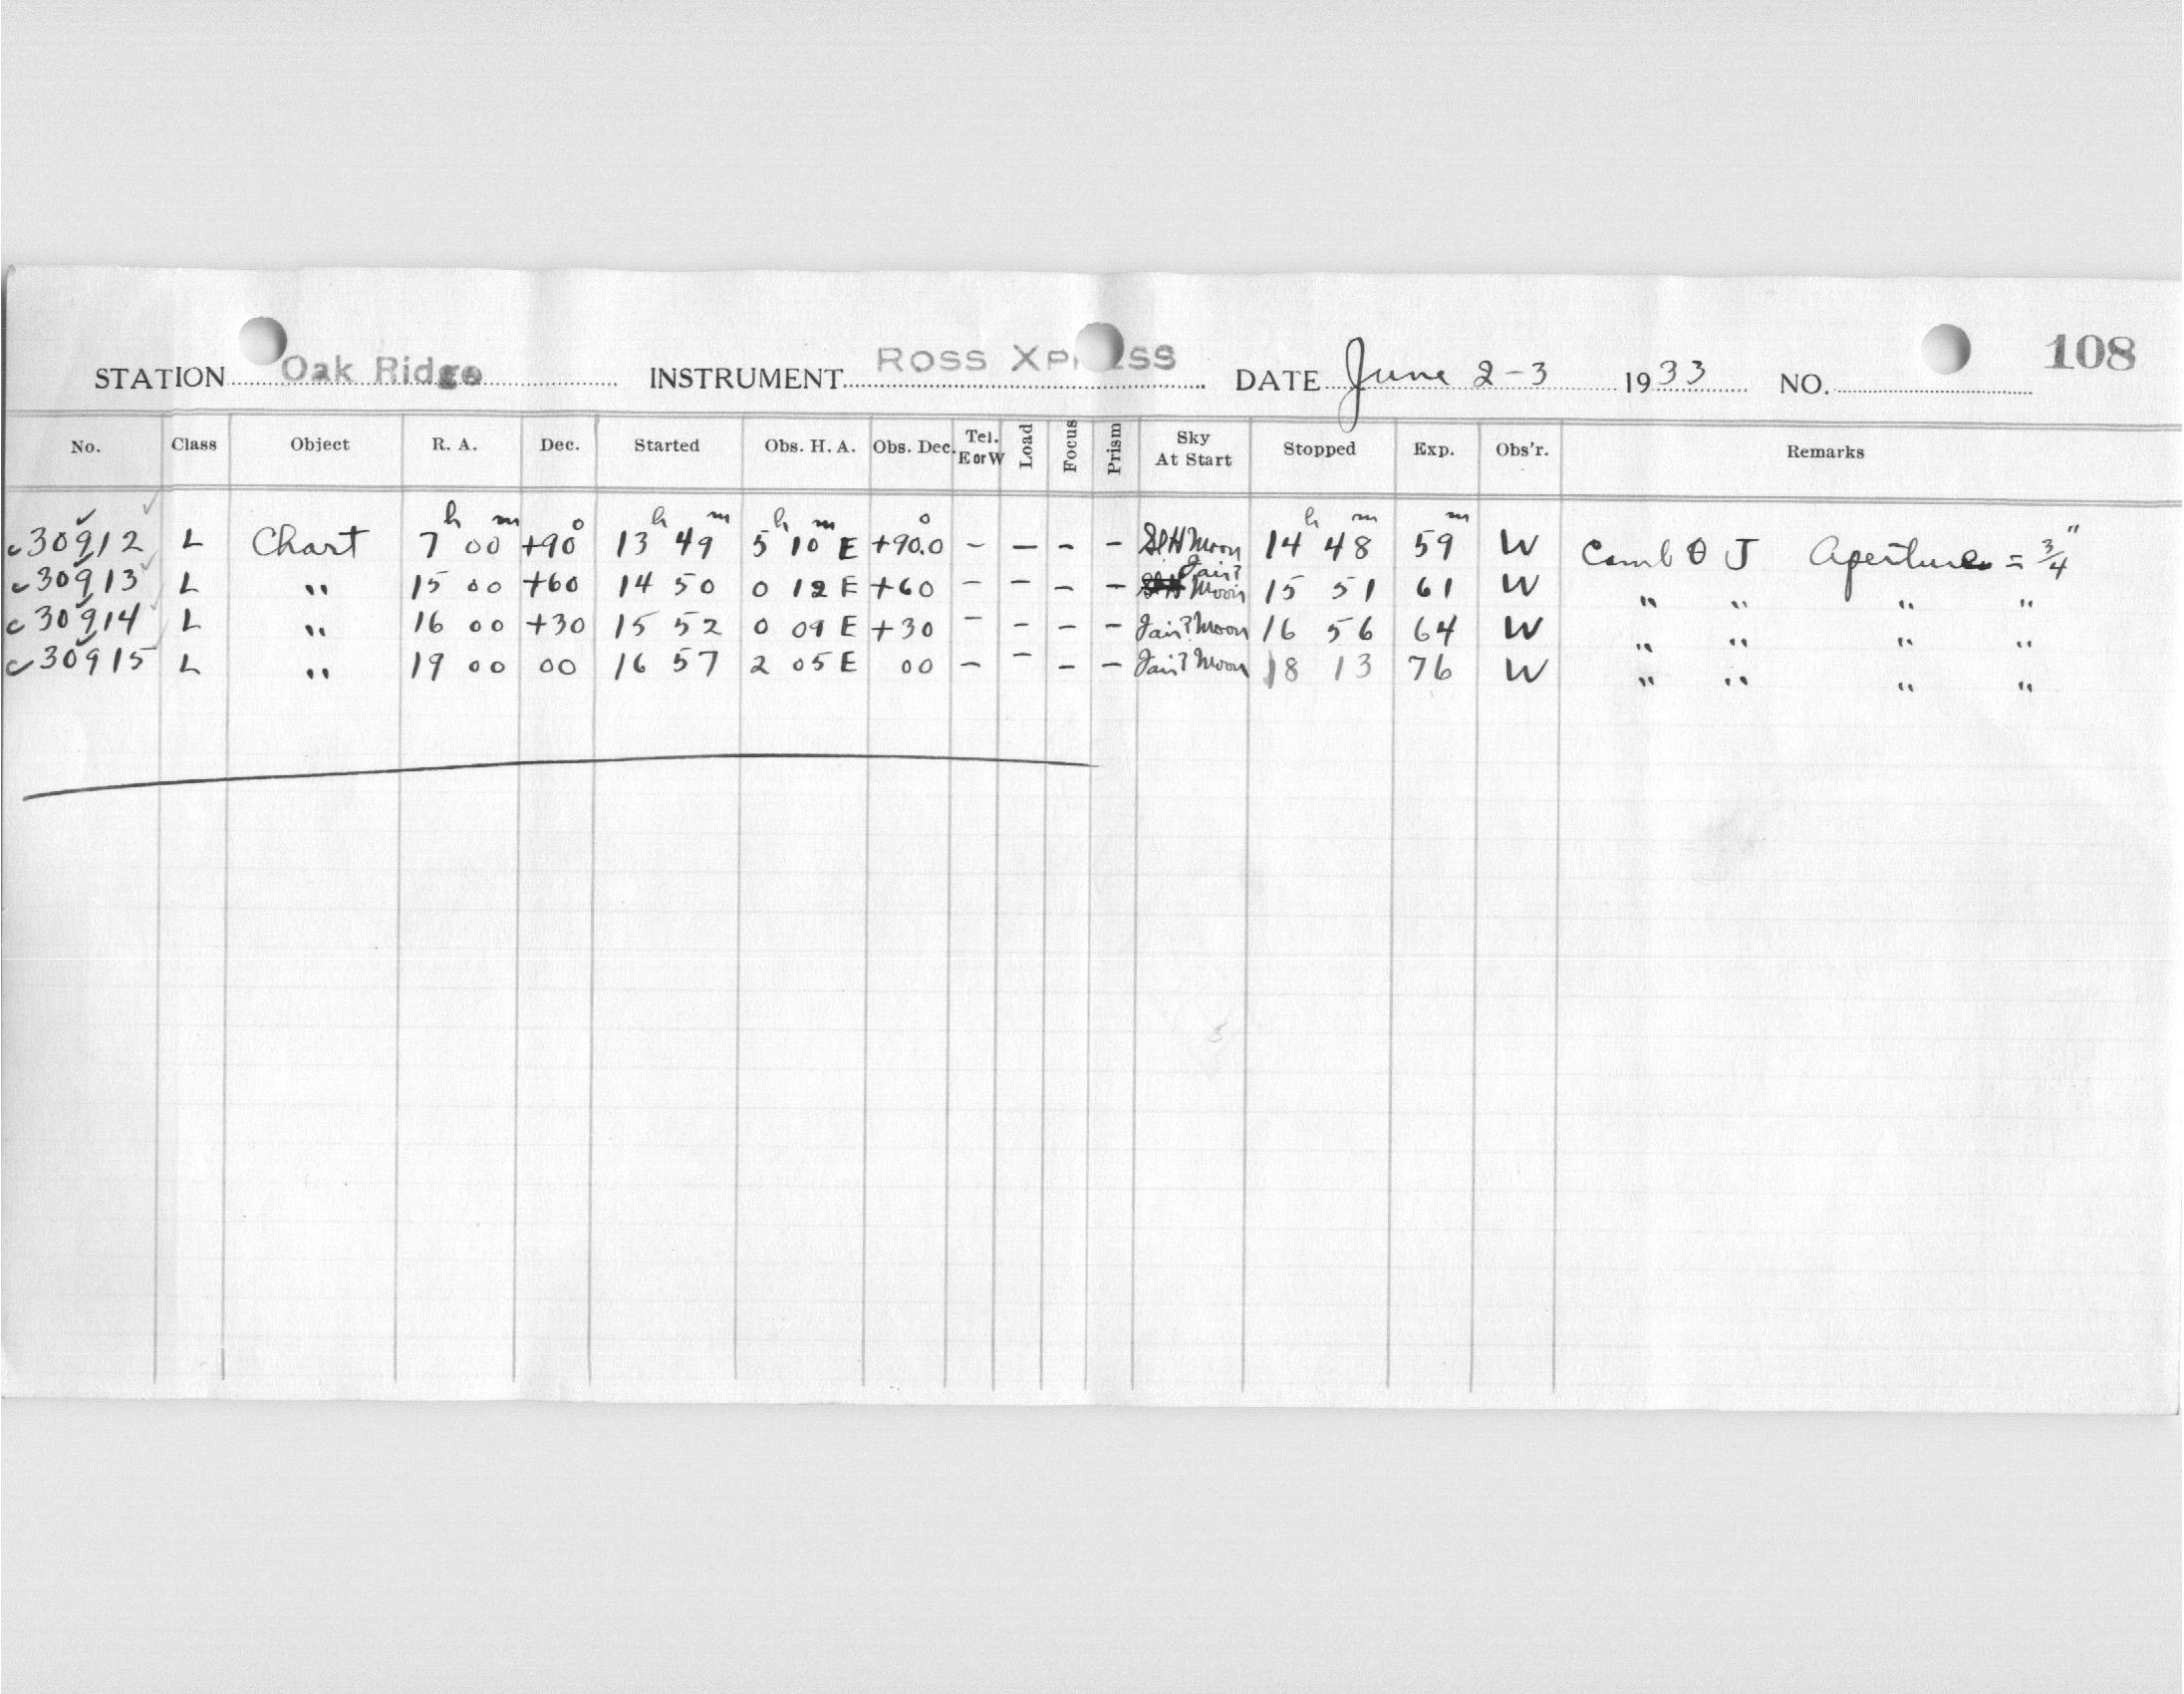 STATION Oak Ridge INSTRUMENT Ross Xpress DATE June 2-3 1933 NO. 108
No. Class Object R. A. Dec. Started Obs. H. A. Obs. Dec. Tel. E or W Load Focus Prism Sky At Start Stopped Exp. Obs'r. Remarks
h m o h m h m o h m m
c30912 L Chart 7 00 +90 13 49 5 10 E +90.0 - - - - Sl H Moon 14 48 59 W Comb θ J Aperture = 3/4"
c30913 L " 15 00 +60 14 50 0 12 E +60 - - - - Fair? Moon 15 51 61 W " " " "
c30914 L " 16 00 +30 15 52 0 09 E +30 - - - - Fair? Moon 16 56 64 W " " " "
c30915 L " 19 00 00 16 57 2 05 E 00 - - - - Fair? Moon 18 13 76 W " " " "